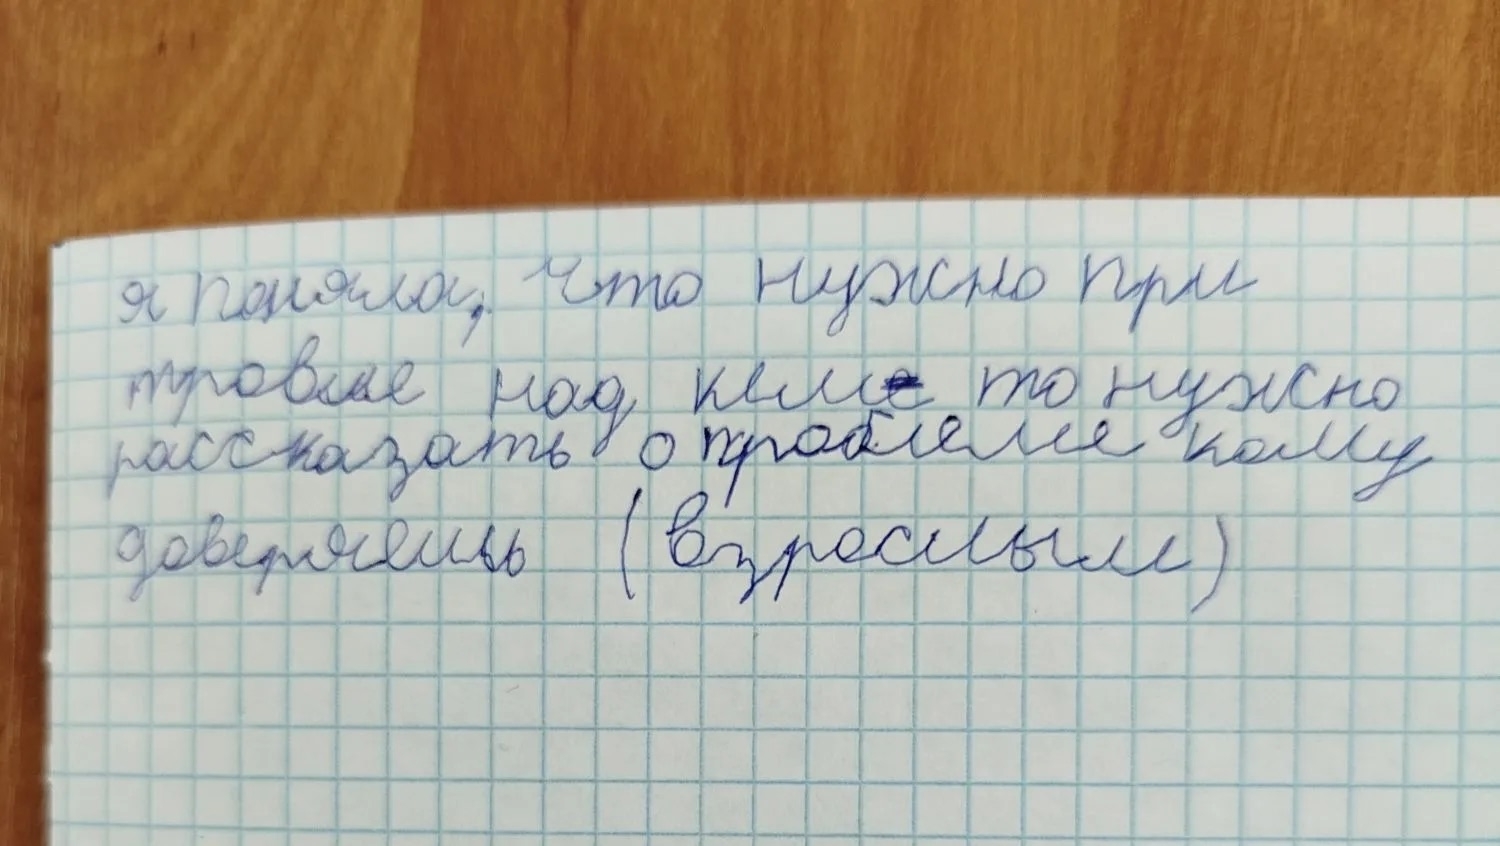 я поняла, что нужно при
травле над кем то нужно
рассказать о проблеме кому
доверяешь (взрослым)